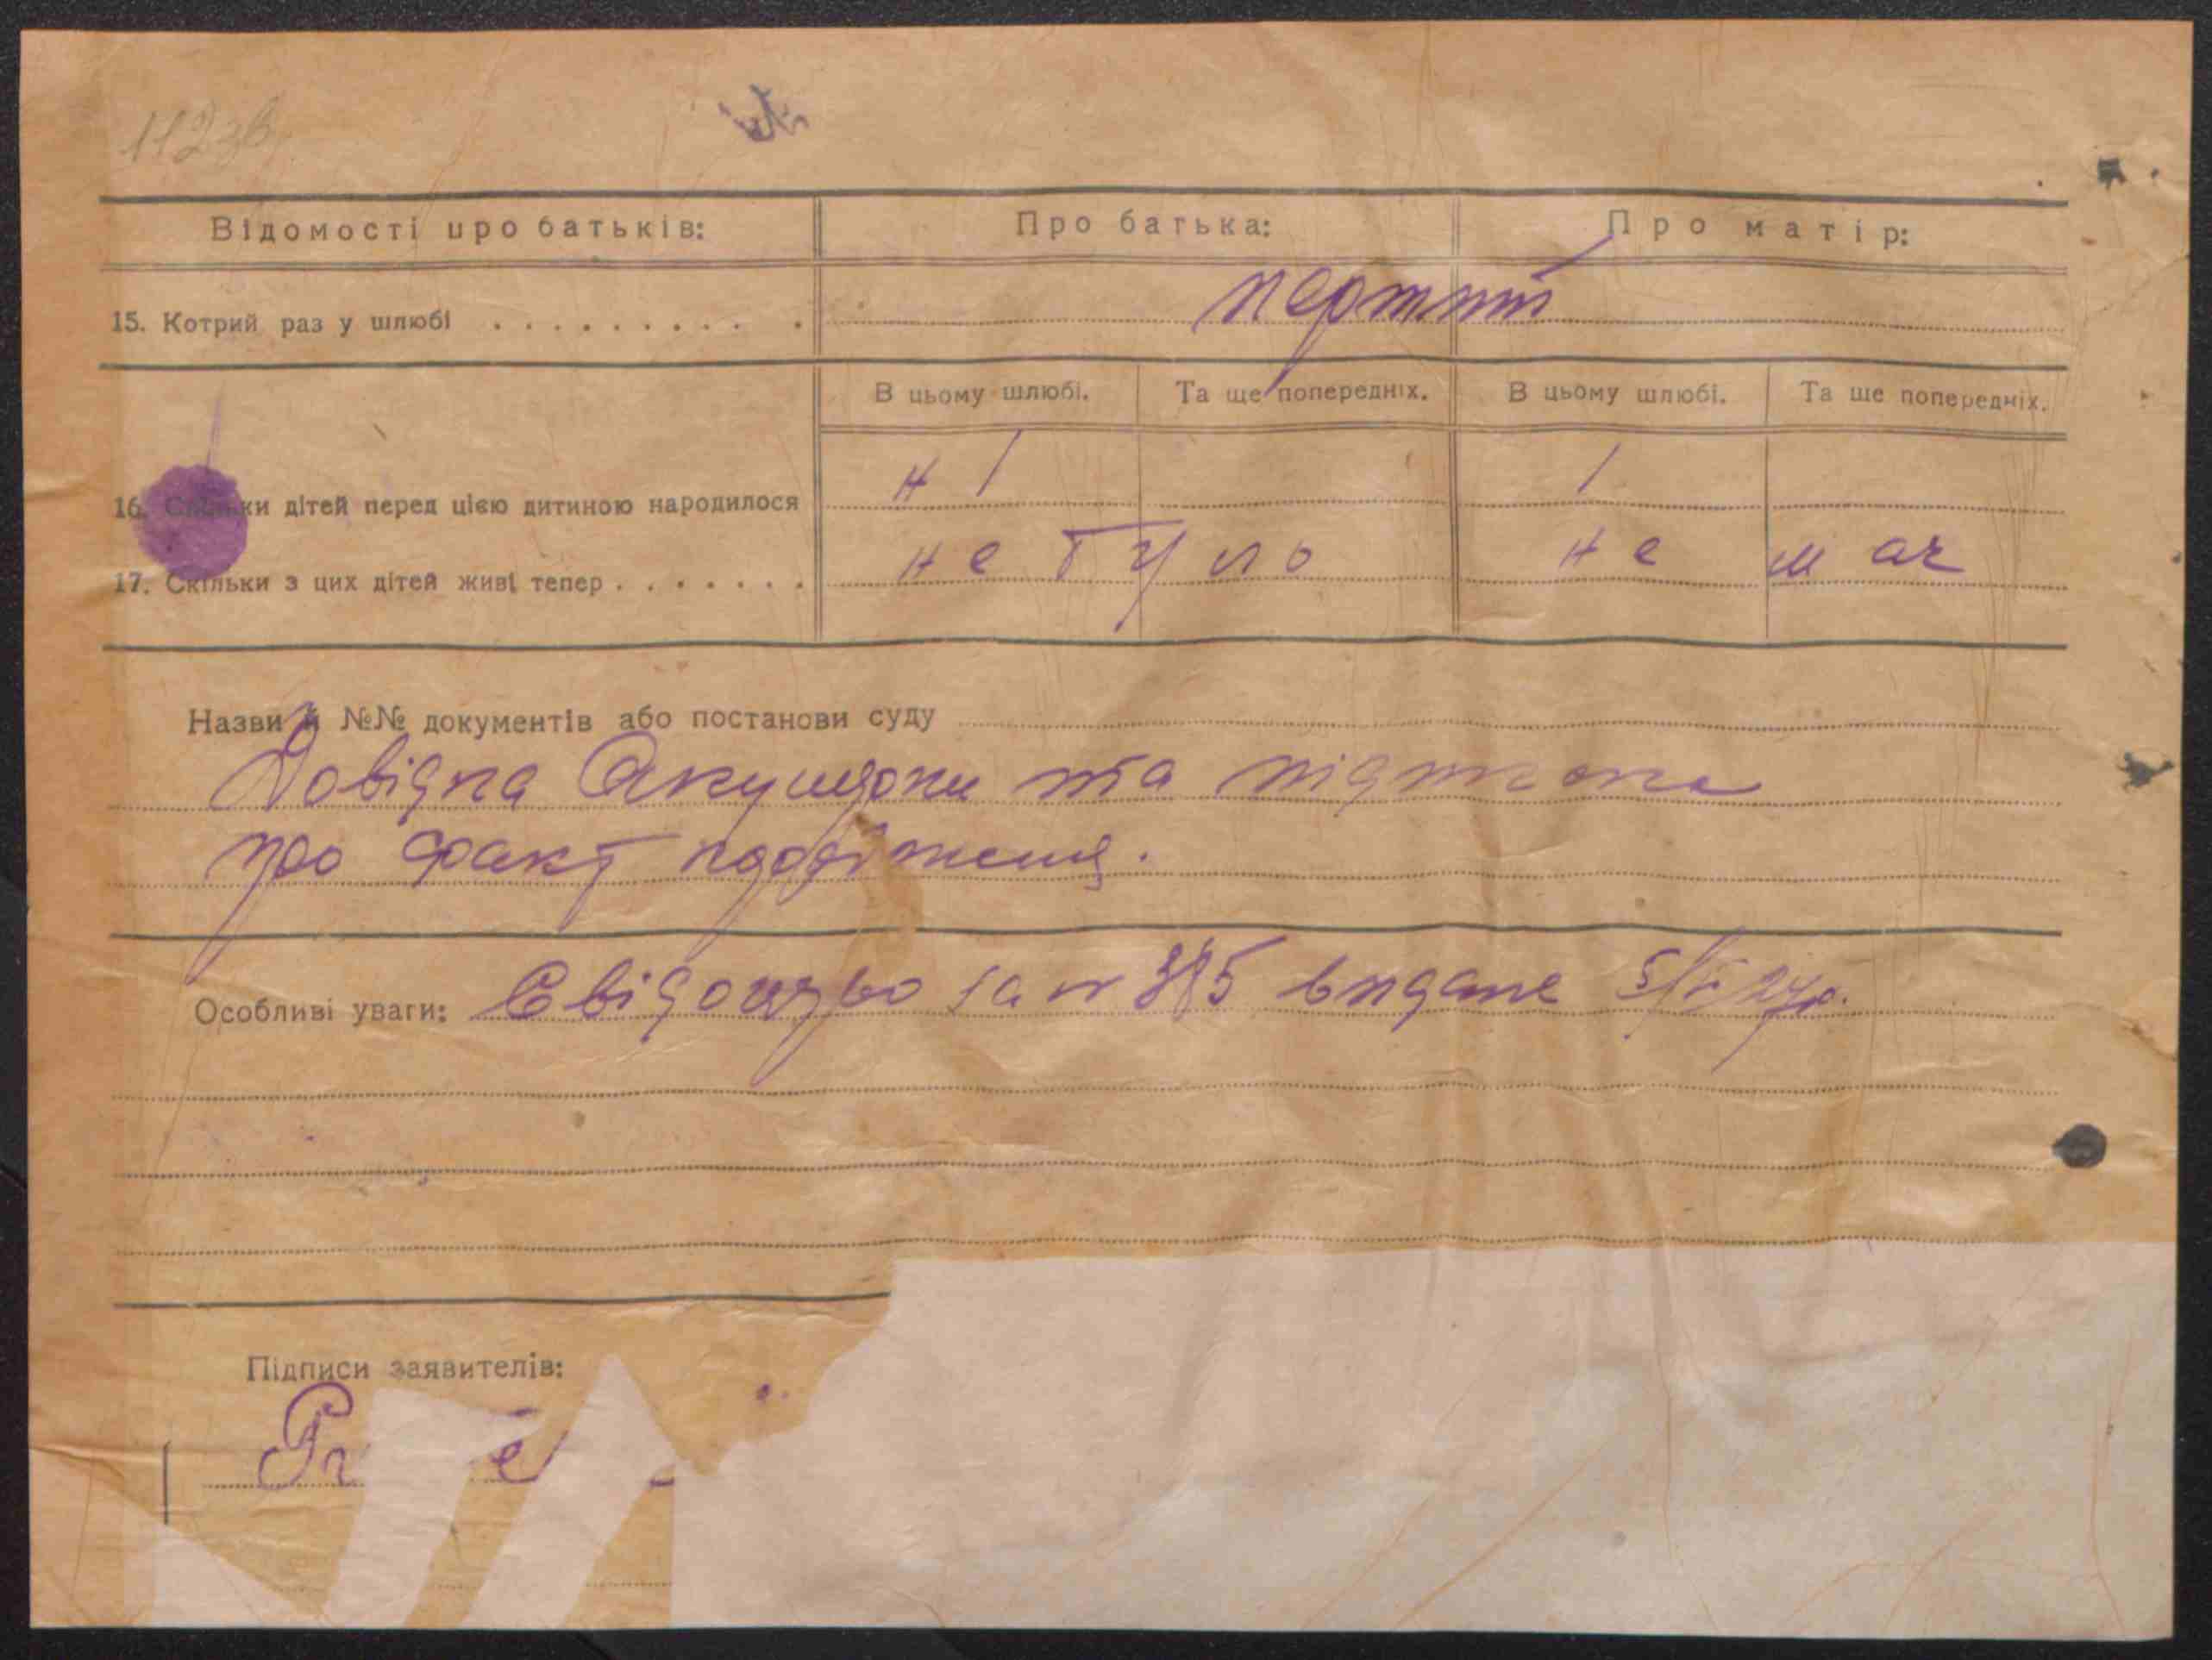 112зв.
Відомості про батьків: Про батька: Про матір:
15. Котрий раз у шлюбі . . . . . . . . . . перший
В цьому шлюбі. Та ще попередніх. В цьому шлюбі. Та ще попередніх.
16. Скільки дітей перед цією дитиною народилося 1 1
17. Скільки з цих дітей живі тепер . . . . . . . не було не має
Назви й №№ документів або постанови суду
Довідка Акушерки та
про факт народження.
Особливі уваги: Свідоцтво за № 385 видане
Підписи заявителів: